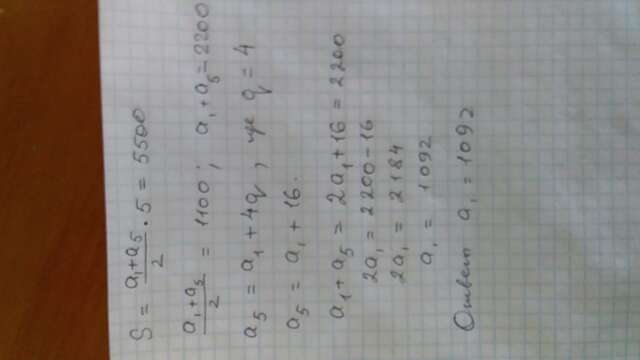 S = (a₁+a₅)/2 · 5 = 5500
(a₁+a₅)/2 = 1100 ; a₁+a₅=2200
a₅ = a₁ + 4q , где q = 4
a₅ = a₁ + 16.
a₁ + a₅ = 2a₁+16 = 2200
2a₁ = 2200-16
2a₁ = 2184
a₁ = 1092
Ответ a₁ = 1092